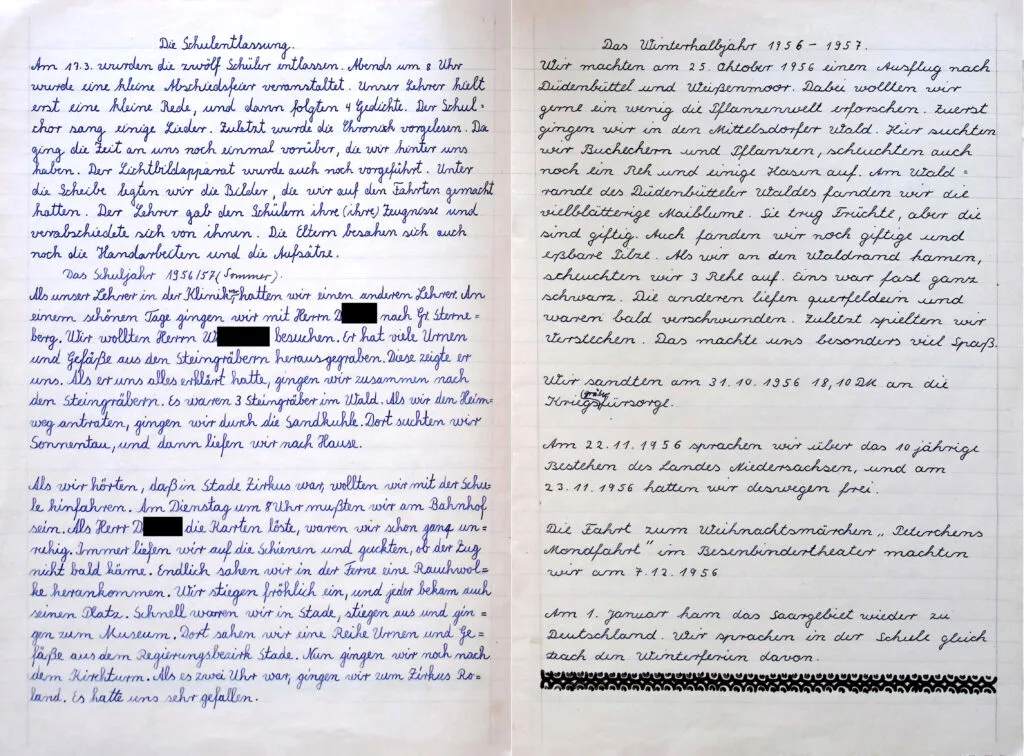 Die Schulentlassung.
Am 17.3. wurden die zwölf Schüler entlassen. Abends um 8 Uhr
wurde eine kleine Abschiedsfeier veranstaltet. Unser Lehrer hielt
erst eine kleine Rede, und dann folgten 4 Gedichte. Der Schul=
chor sang einige Lieder. Zuletzt wurde die Chronik vorgelesen. Da
ging die Zeit an uns noch einmal vorüber, die wir hinter uns
haben. Der Lichtbildapparat wurde auch noch vorgeführt. Unter
die Scheibe legten wir die Bilder, die wir auf den Fahrten gemacht
hatten. Der Lehrer gab den Schülern ihre (ihre) Zeugnisse und
verabschiedete sich von ihnen. Die Eltern besahen sich auch
noch die Handarbeiten und die Aufsätze.
Das Schuljahr 1956/57 (Sommer).
Als unser Lehrer in der Klinik war, hatten wir einen anderen Lehrer. An
einem schönen Tage gingen wir mit Herrn D nach Gr. Sterne=
berg. Wir wollten Herrn W besuchen. Er hat viele Urnen
und Gefäße aus den Steingräbern herausgegraben. Diese zeigte er
uns. Als er uns alles erklärt hatte, gingen wir zusammen nach
den Steingräbern. Es waren 3 Steingräber im Wald. Als wir den Heim=
weg antraten, gingen wir durch die Sandkuhle. Dort suchten wir
Sonnentau, und dann liefen wir nach Hause.
Als wir hörten, daß in Stade Zirkus war, wollten wir mit der Schu=
le hinfahren. Am Dienstag um 8 Uhr mußten wir am Bahnhof
sein. Als Herr D die Karten löste, waren wir schon ganz un=
ruhig. Immer liefen wir auf die Schienen und guckten, ob der Zug
nicht bald käme. Endlich sahen wir in der Ferne eine Rauchwol=
ke herankommen. Wir stiegen fröhlich ein, und jeder bekam auch
seinen Platz. Schnell waren wir in Stade, stiegen aus und gin=
gen zum Museum. Dort sahen wir eine Reihe Urnen und Ge=
fäße aus dem Regierungsbezirk Stade. Nun gingen wir noch nach
dem Kirchturm. Als es zwei Uhr war, gingen wir zum Zirkus Ro=
land. Es hatte uns sehr gefallen.
Das Winterhalbjahr 1956 - 1957.
Wir machten am 25. Oktober 1956 einen Ausflug nach
Düdenbüttel und Weißenmoor. Dabei wollten wir
gerne ein wenig die Pflanzenwelt erforschen. Zuerst
gingen wir in den Mittelsdorfer Wald. Hier suchten
wir Bucheckern und Pflanzen, scheuchten auch
noch ein Reh und einige Hasen auf. Am Wald=
rande des Düdenbütteler Waldes fanden wir die
vielblätterige Maiblume. Sie trug Früchte, aber die
sind giftig. Auch fanden wir noch giftige und
eßbare Pilze. Als wir an den Waldrand kamen,
scheuchten wir 3 Rehe auf. Eins war fast ganz
schwarz. Die anderen liefen querfeldein und
waren bald verschwunden. Zuletzt spielten wir
Verstecken. Das machte uns besonders viel Spaß.
Wir sandten am 31.10.1956 18,10 DM an die
Kriegsgräberfürsorge.
Am 22.11.1956 sprachen wir über das 10 jährige
Bestehen des Landes Niedersachsen, und am
23.11.1956 hatten wir deswegen frei.
Die Fahrt zum Weihnachtsmärchen „Peterchens
Mondfahrt" im Besenbindertheater machten
wir am 7.12.1956
Am 1. Januar kam das Saargebiet wieder zu
Deutschland. Wir sprachen in der Schule gleich
nach den Winterferien davon.